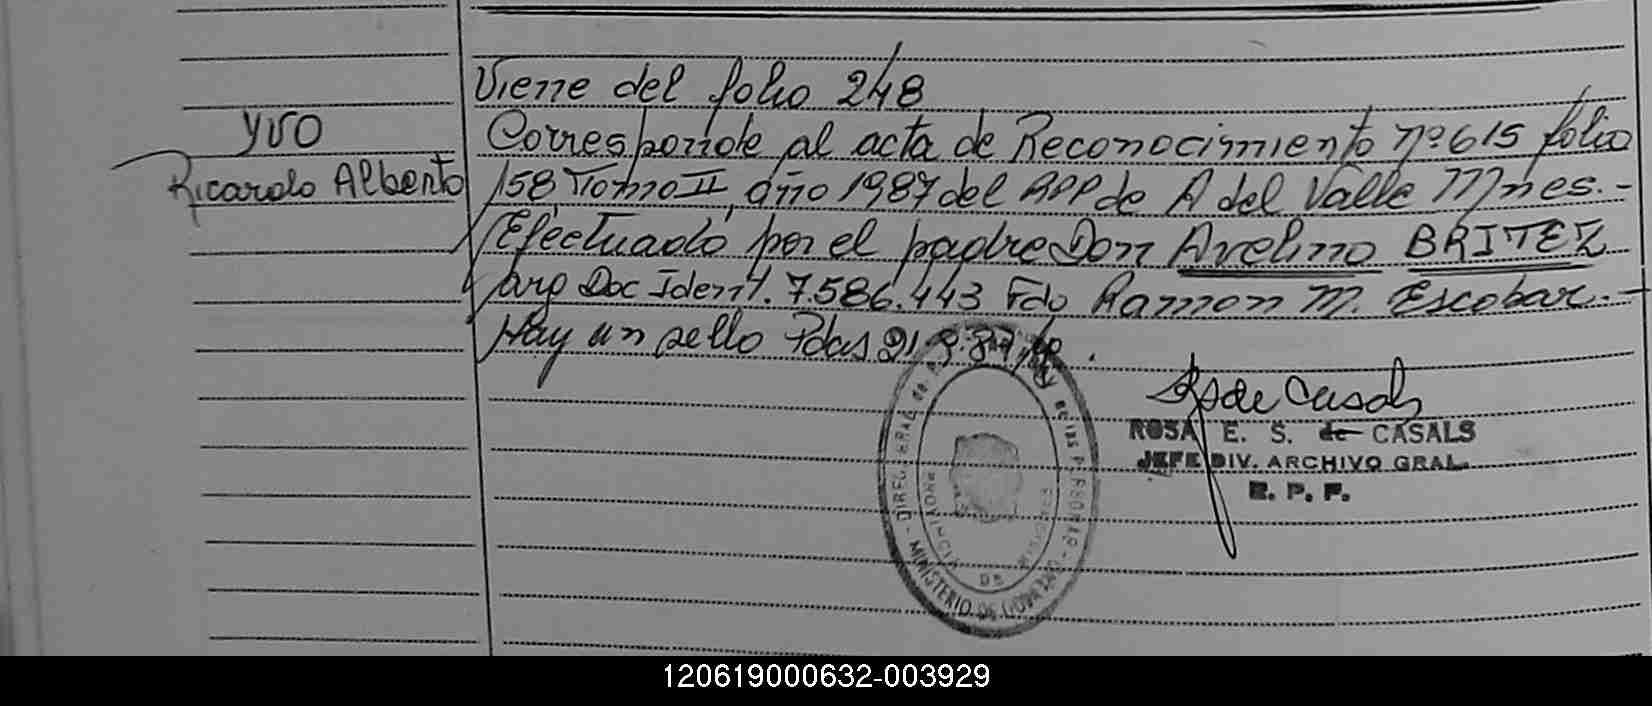 Viene del folio 248
YVO
Ricardo Alberto
Corresponde al acta de Reconocimiento nº 615 folio
158, Tomo II, año 1987 del RPP de A del Valle Mnes.-
Efectuado por el padre Don Avelino BRITEZ
arg Doc Ident. 7.586.443 Fdo Ramon M. Escobar.-
Hay un sello Pdas 21.9.87
Rs de Casals
ROSA E. S. de CASALS
JEFE DIV. ARCHIVO GRAL.
R. P. P.
MINISTERIO DE GOBIERNO
PROVINCIA DE MISIONES
120619000632-003929